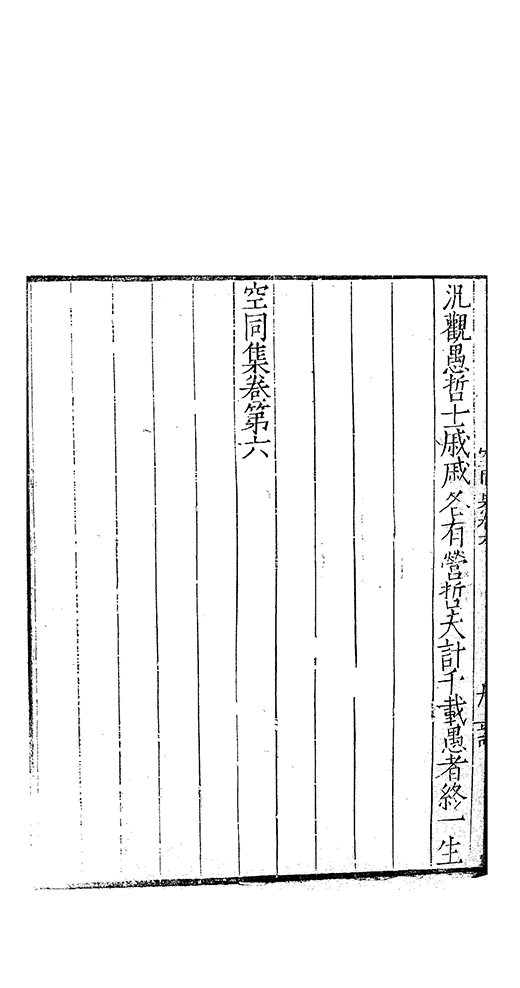 況觀愚哲士戚戚各有營哲夫計千載愚者終一生
空同集卷第六